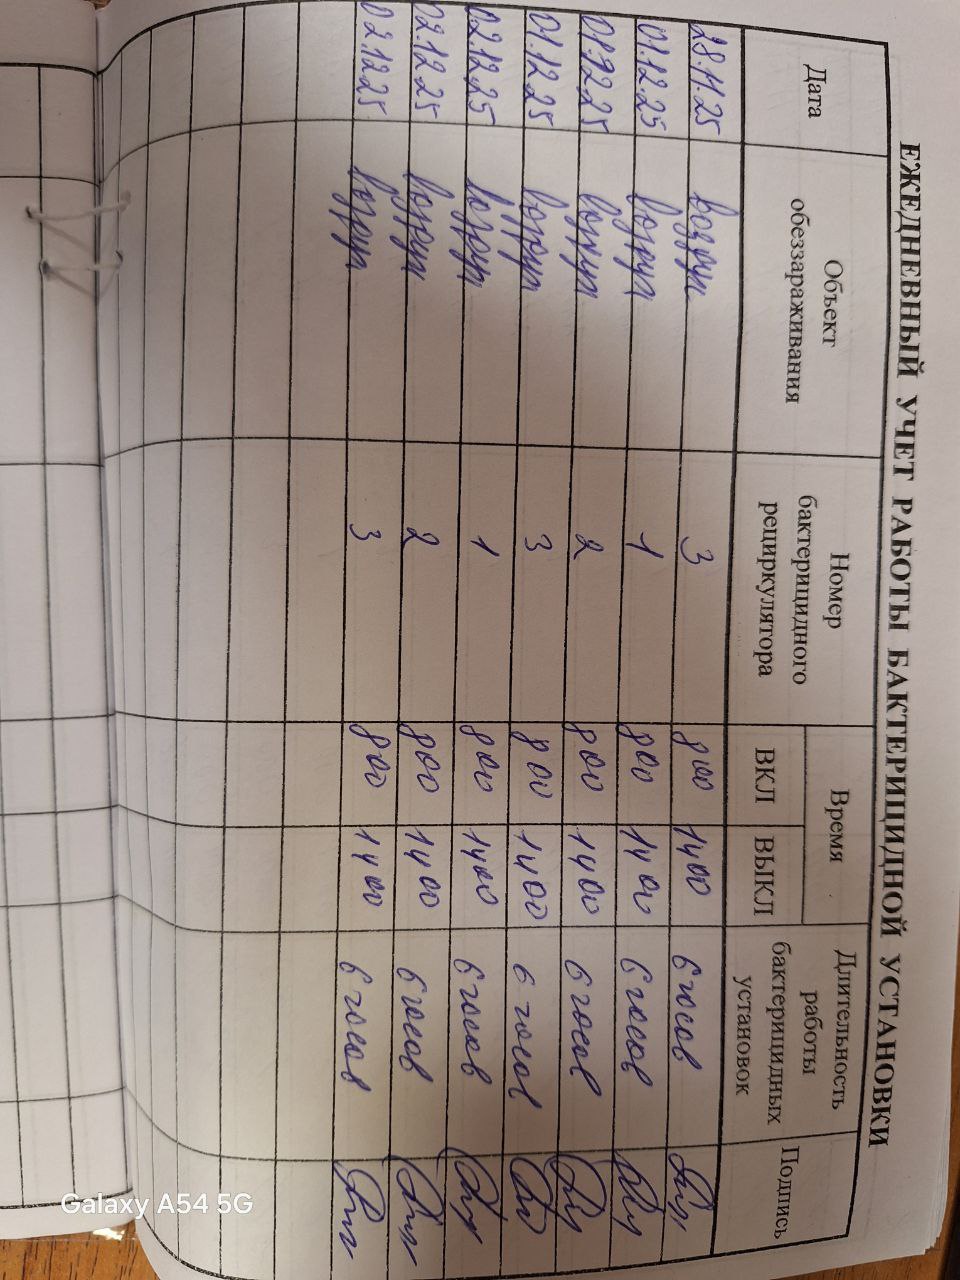 ЕЖЕДНЕВНЫЙ УЧЕТ РАБОТЫ БАКТЕРИЦИДНОЙ УСТАНОВКИ
Дата Объект обеззараживания Номер бактерицидного рециркулятора Время ВКЛ ВЫКЛ Длительность работы бактерицидных установок Подпись
28.11.25 воздух 3 800 1400 6 часов
01.12.25 воздух 1 800 1400 6 часов
01.12.25 воздух 2 800 1400 6 часов
01.12.25 воздух 3 800 1400 6 часов
02.12.25 воздух 1 800 1400 6 часов
02.12.25 воздух 2 800 1400 6 часов
02.12.25 воздух 3 800 1400 6 часов
Galaxy A54 5G